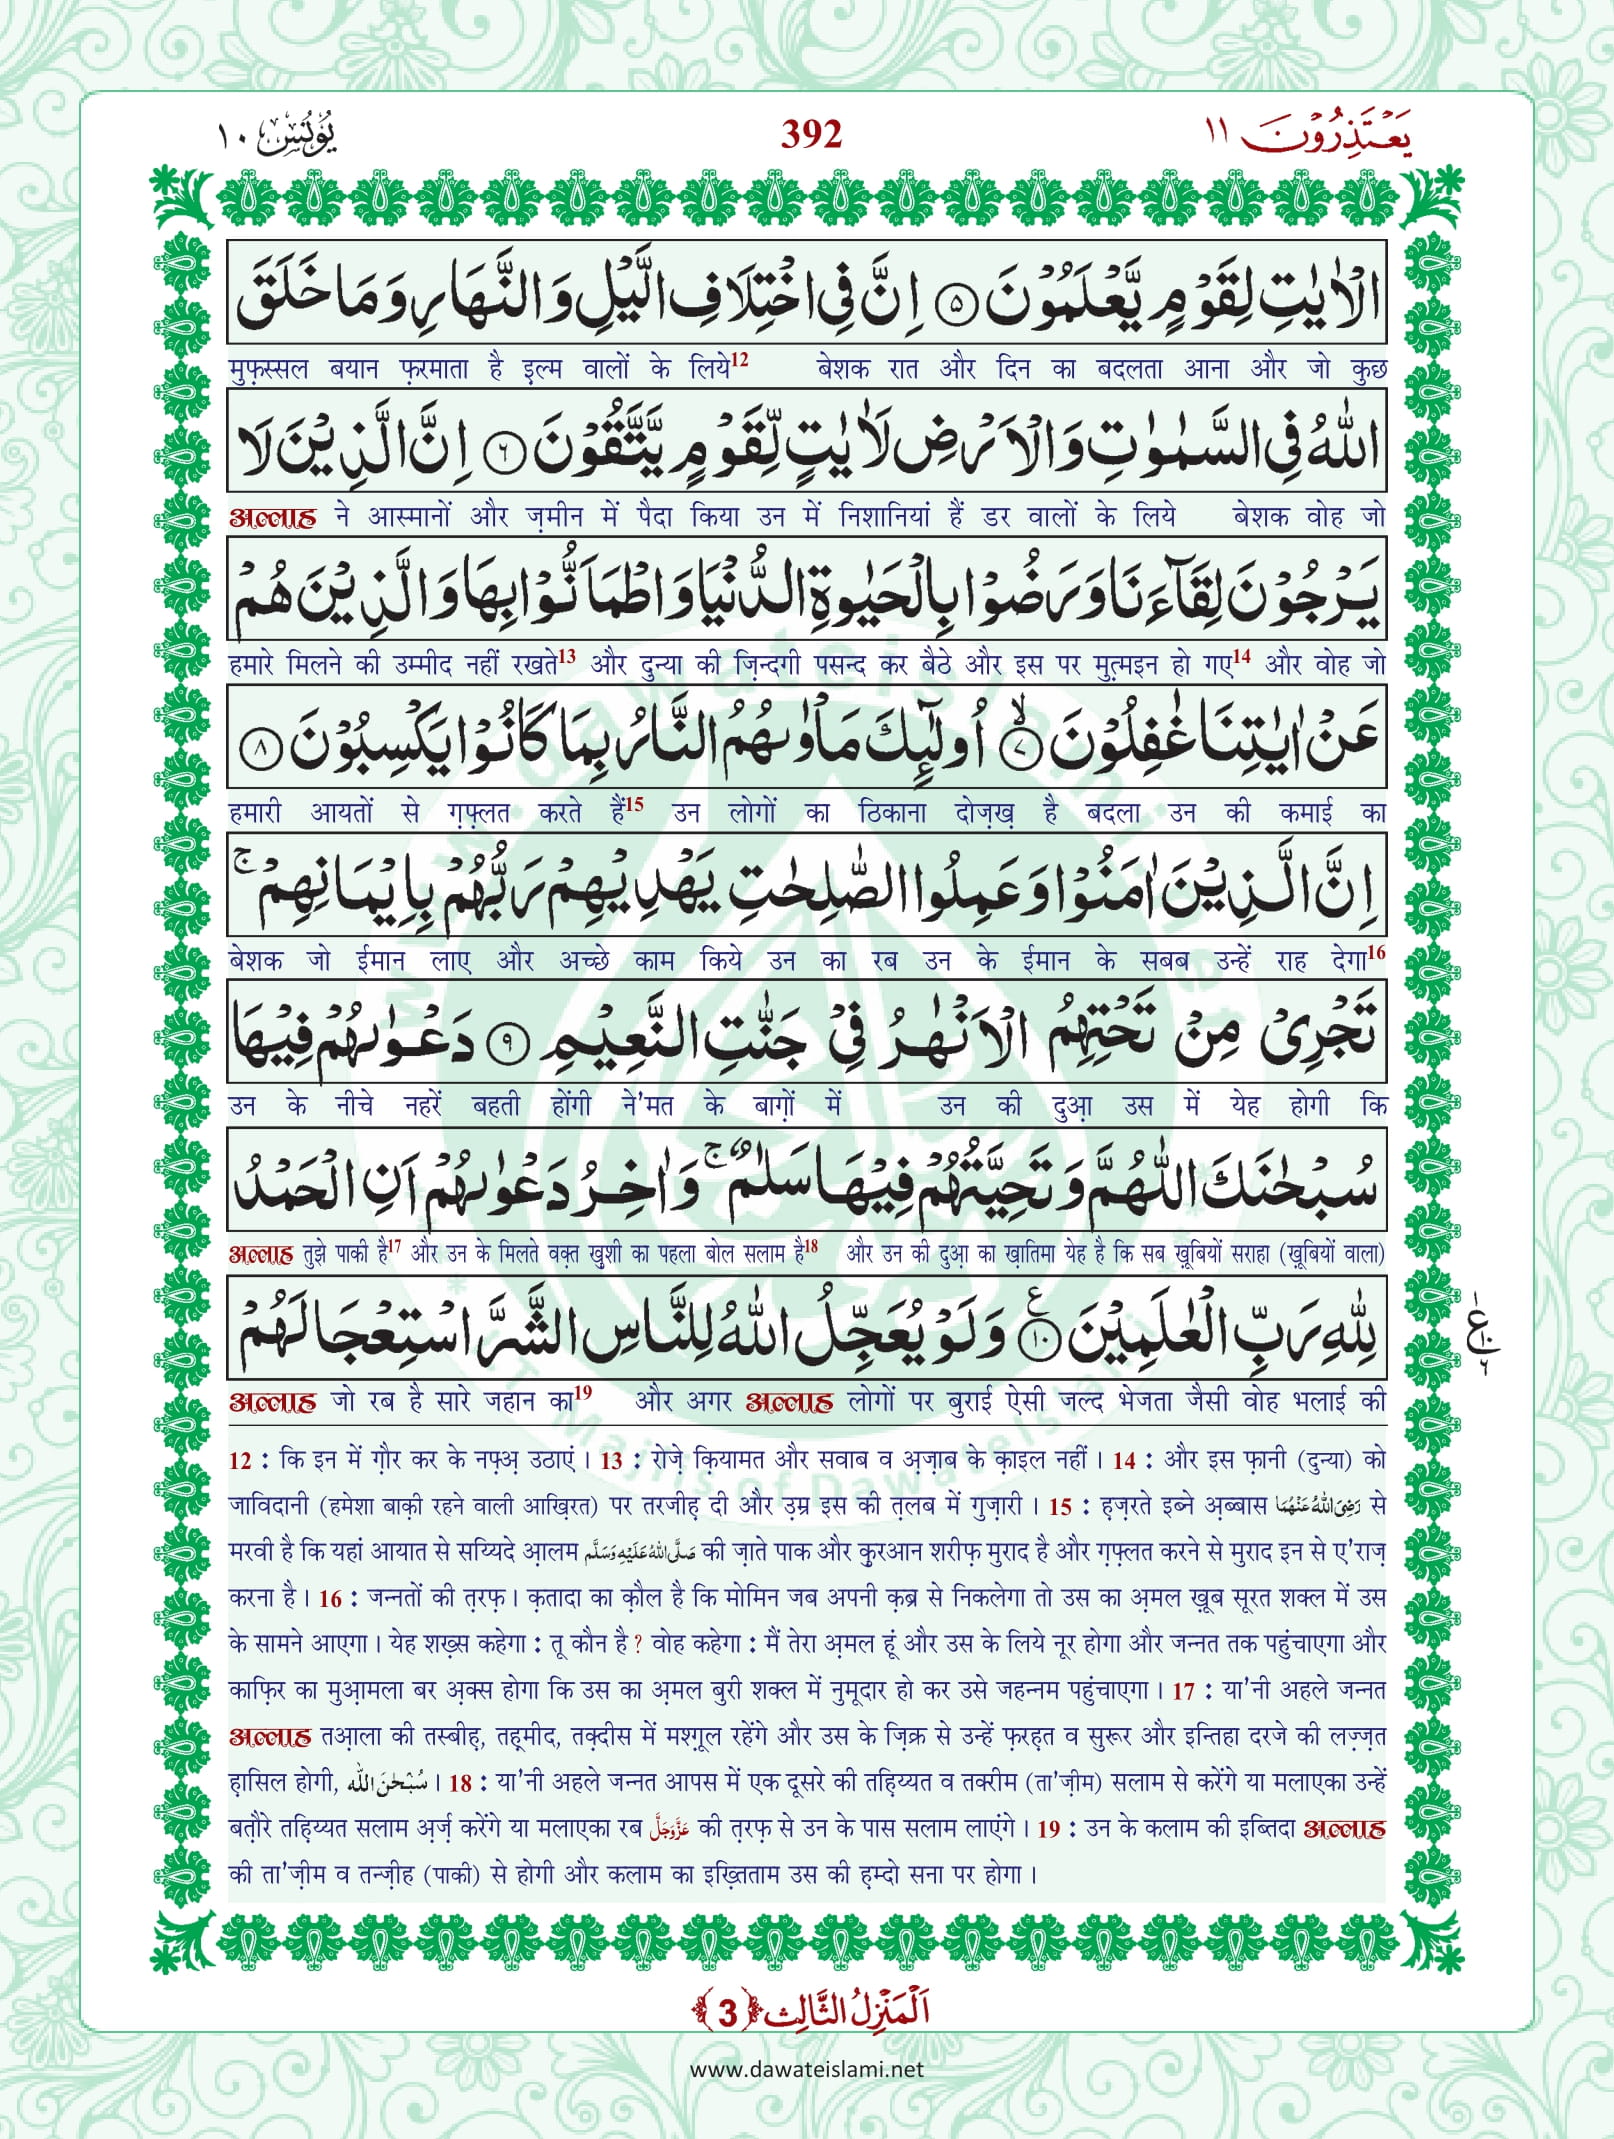 يَعْتَذِرُوْنَ ١١
392
يُوْنُس ١٠
الْاٰيٰتِ لِقَوْمٍ يَّعْلَمُوْنَ ۝٥ اِنَّ فِى اخْتِلَافِ الَّيْلِ وَ النَّهَارِ وَ مَا خَلَقَ
मुफ़स्सल बयान फ़रमाता है इ़ल्म वालों के लिये12 बेशक रात और दिन का बदलता आना और जो कुछ
اللّٰهُ فِى السَّمٰوٰتِ وَ الْاَرْضِ لَاٰیٰتٍ لِّقَوْمٍ یَّتَّقُوْنَ ۝٦ اِنَّ الَّذِیْنَ لَا
अल्लाह ने आस्मानों और ज़मीन में पैदा किया उन में निशानियां हैं डर वालों के लिये बेशक वोह जो
یَرْجُوْنَ لِقَآءَنَا وَ رَضُوْا بِالْحَیٰوةِ الدُّنْیَا وَ اطْمَاَنُّوْا بِهَا وَ الَّذِیْنَ هُمْ
हमारे मिलने की उम्मीद नहीं रखते13 और दुन्या की ज़िन्दगी पसन्द कर बैठे और इस पर मुत़्मइन हो गए14 और वोह जो
عَنْ اٰیٰتِنَا غٰفِلُوْنَ ۝٧ۙ اُولٰٓىٕكَ مَاْوٰىهُمُ النَّارُ بِمَا كَانُوْا یَكْسِبُوْنَ ۝٨
हमारी आयतों से ग़फ़्लत करते हैं15 उन लोगों का ठिकाना दोज़ख़ है बदला उन की कमाई का
اِنَّ الَّذِیْنَ اٰمَنُوْا وَ عَمِلُوا الصّٰلِحٰتِ یَهْدِیْهِمْ رَبُّهُمْ بِاِیْمَانِهِمْۚ
बेशक जो ईमान लाए और अच्छे काम किये उन का रब उन के ईमान के सबब उन्हें राह देगा16
تَجْرِیْ مِنْ تَحْتِهِمُ الْاَنْهٰرُ فِیْ جَنّٰتِ النَّعِیْمِ ۝٩ دَعْوٰىهُمْ فِیْهَا
उन के नीचे नहरें बहती होंगी ने'मत के बाग़ों में उन की दुआ़ उस में येह होगी कि
سُبْحٰنَكَ اللّٰهُمَّ وَ تَحِیَّتُهُمْ فِیْهَا سَلٰمٌۚ وَ اٰخِرُ دَعْوٰىهُمْ اَنِ الْحَمْدُ
अल्लाह तुझे पाकी है17 और उन के मिलते वक़्त ख़ुशी का पहला बोल सलाम है18 और उन की दुआ़ का ख़ातिमा येह है कि सब ख़ूबियों सराहा (ख़ूबियों वाला)
لِلّٰهِ رَبِّ الْعٰلَمِیْنَ ۝١٠ع وَ لَوْ یُعَجِّلُ اللّٰهُ لِلنَّاسِ الشَّرَّ اسْتِعْجَالَهُمْ
अल्लाह जो रब है सारे जहान का19 और अगर अल्लाह लोगों पर बुराई ऐसी जल्द भेजता जैसी वोह भलाई की
12 : कि इन में ग़ौर कर के नफ़्अ़ उठाएं। 13 : रोज़े क़ियामत और सवाब व अ़ज़ाब के क़ाइल नहीं। 14 : और इस फ़ानी (दुन्या) को
जाविदानी (हमेशा बाक़ी रहने वाली आख़िरत) पर तरजीह़ दी और उ़म्र इस की त़लब में गुज़ारी। 15 : ह़ज़रते इब्ने अ़ब्बास رَضِیَ اللّٰهُ عَنْهُمَا से
मरवी है कि यहां आयात से सय्यिदे आ़लम صَلَّی اللّٰهُ عَلَیْهِ وَسَلَّم की ज़ाते पाक और क़ुरआन शरीफ़ मुराद है और ग़फ़्लत करने से मुराद इन से ए'राज़
करना है। 16 : जन्नतों की त़रफ़। क़तादा का क़ौल है कि मोमिन जब अपनी क़ब्र से निकलेगा तो उस का अ़मल ख़ूब सूरत शक्ल में उस
के सामने आएगा। येह शख़्स कहेगा : तू कौन है? वोह कहेगा : मैं तेरा अ़मल हूं और उस के लिये नूर होगा और जन्नत तक पहुंचाएगा और
काफ़िर का मुआ़मला बर अ़क्स होगा कि उस का अ़मल बुरी शक्ल में नुमूदार हो कर उसे जहन्नम पहुंचाएगा। 17 : या'नी अहले जन्नत
अल्लाह तआ़ला की तस्बीह़, तह़मीद, तक़्दीस में मश्ग़ूल रहेंगे और उस के ज़िक्र से उन्हें फ़रह़त व सुरूर और इन्तिहा दरजे की लज़्ज़त
ह़ासिल होगी, سُبْحٰنَ اللّٰه। 18 : या'नी अहले जन्नत आपस में एक दूसरे की तह़िय्यत व तक्रीम (ता'ज़ीम) सलाम से करेंगे या मलाएका उन्हें
बत़ौरे तह़िय्यत सलाम अ़र्ज़ करेंगे या मलाएका रब عَزَّوَجَلَّ की त़रफ़ से उन के पास सलाम लाएंगे। 19 : उन के कलाम की इब्तिदा अल्लाह
की ता'ज़ीम व तन्ज़ीह (पाकी) से होगी और कलाम का इख़्तिताम उस की ह़म्दो सना पर होगा।
اَلْمَنْزِلُ الثَّالِث ﴿3﴾
www.dawateislami.net